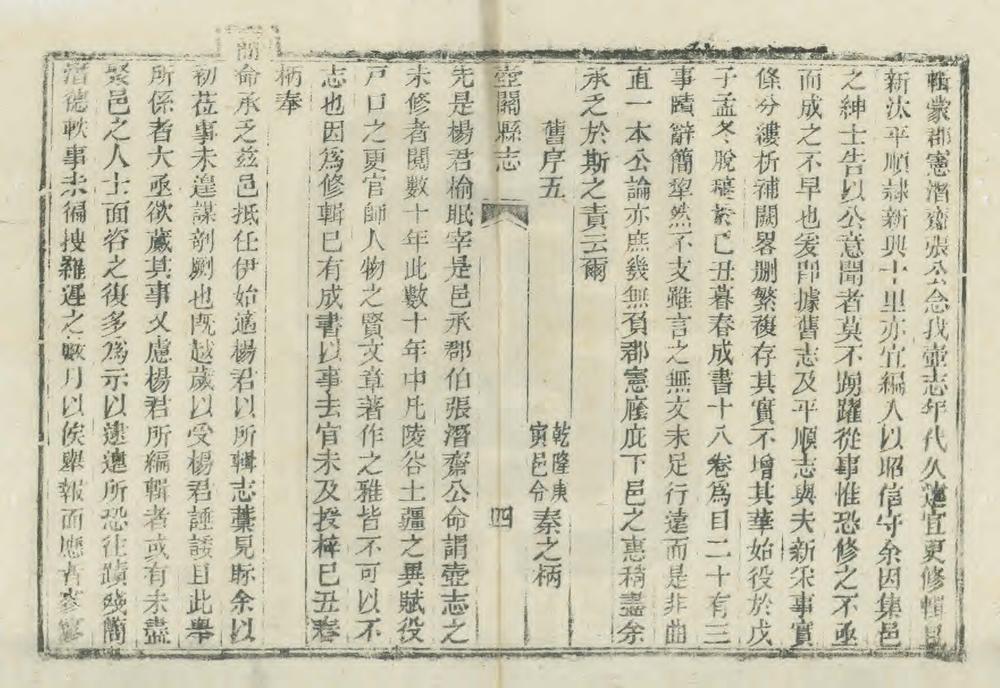 輯蒙郡憲潛齋張公念我壺志年代久遠宜更修輯邑
新汰平順隸新興十里亦宜編入以昭信守余因集邑
之紳士告以公意聞者莫不踴躍從事惟恐修之不亟
而成之不早也爰即據舊志及平順志與夫新采事實
條分縷析補闕畧刪繁複存其實不增其華始役於戊
子孟冬脫稾於己丑暮春成書十八卷爲目二十有三
事賾辭簡犂然不支雖言之無文未足行遠而是非曲
直一本公論亦庶幾無負郡憲廑庇下邑之惠稍盡余
承乏於斯之責云爾
舊序五 乾隆庚寅邑令 秦之柄
壺關縣志 四
先是楊君榆眠宰是邑承郡伯張潛齋公命謂壺志之
未修者閱數十年此數十年中凡陵谷土疆之異賦役
戸口之更官師人物之賢文章著作之雅皆不可以不
志也因爲修輯已有成書以事去官未及授梓巳丑春
柄奉
簡命承乏兹邑抵任伊始適楊君以所輯志藁見眎余以
初莅事未遑謀剞劂也既越歲以受楊君諈諉且此舉
所係者大亟欲蕆其事又慮楊君所編輯者或有未盡
爰邑之人士面咨之復多爲示以逮遭所恐往蹟殘簡
潛德軼事未徧搜羅遲之數月以俟舉報而應者寥寥